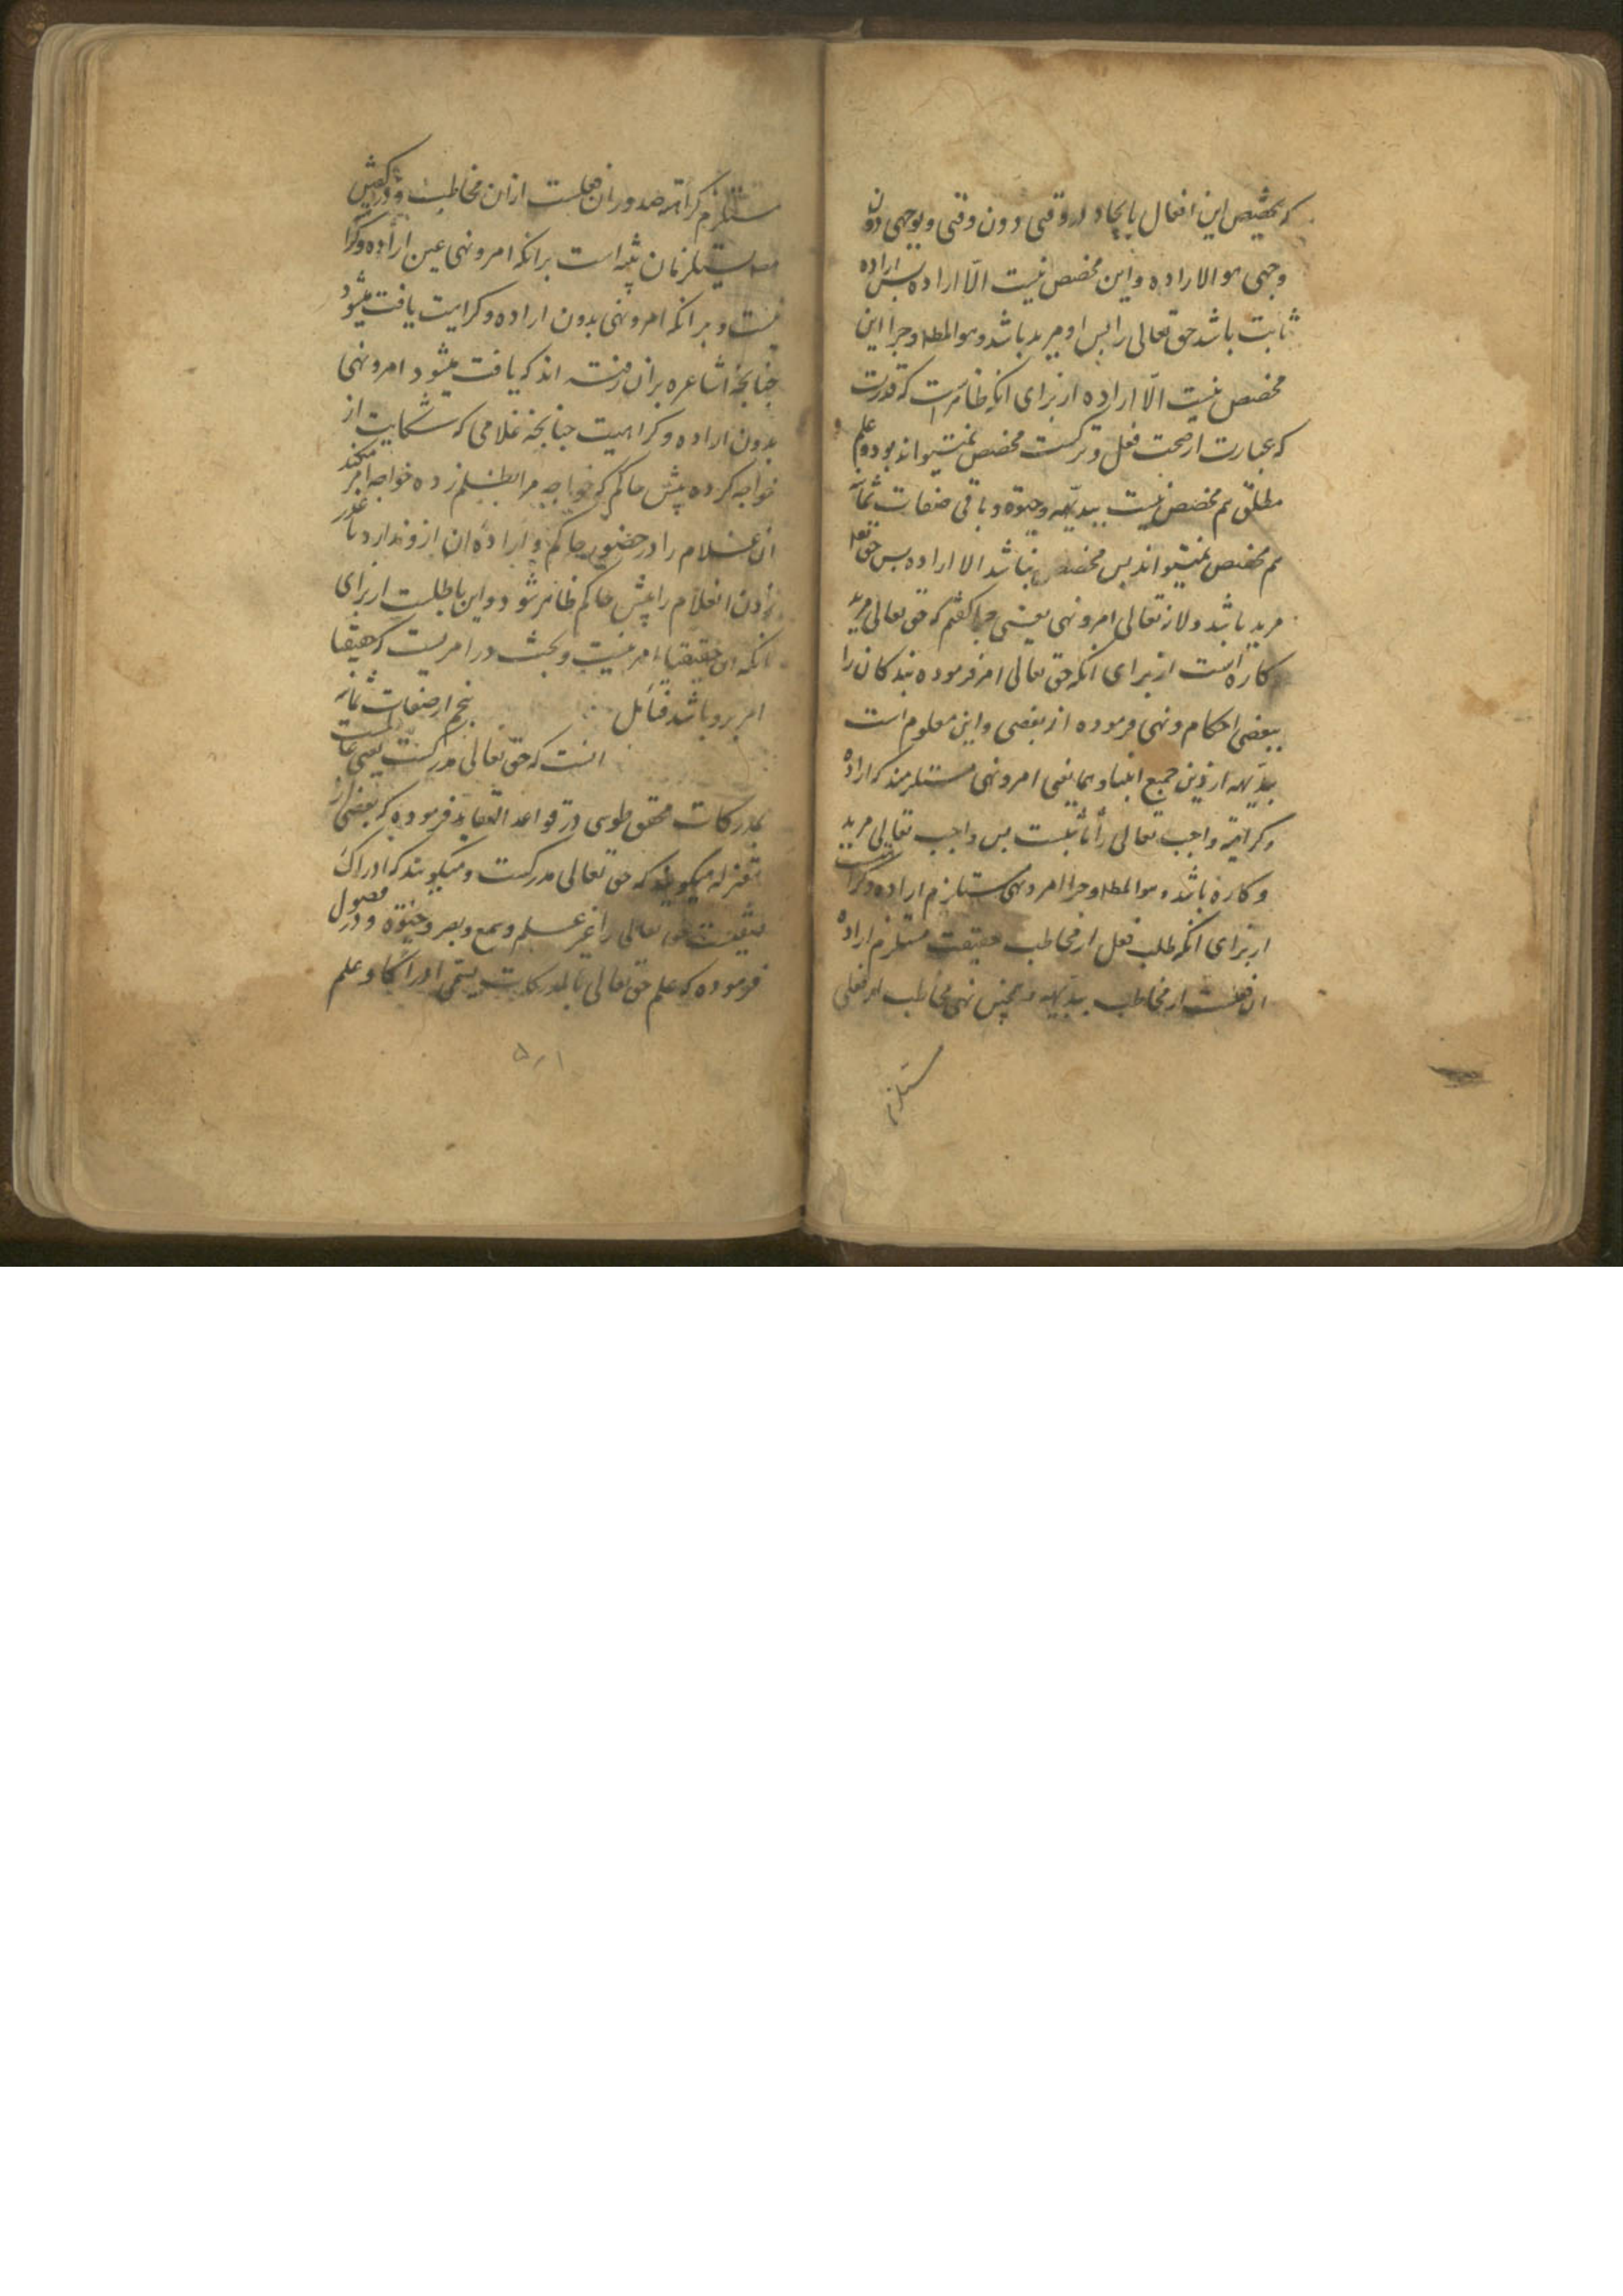 که تخصیص این افعال بایجاد در وقتی دون وقتی و بوجهی دون
وجهی هو الاراده و این مخصص نیست الّا اراده بس اراده
ثابت باشد حق تعالی را بس او مرید باشد و هو المط و چرا این
مخصص نیست الّا اراده از برای انکه ظاهرست که قدرت
که عبارت از صحت فعل و ترکست مخصص نمیتواند بود و علم
مطلق هم مخصص نیست ببدیهه و حیوة و باقی صفات ثمانیه
هم مخصص نمیتواند بس مخصص نباشد الا اراده بس حق تعا
مرید باشد و لانه تعالی امر و نهی یعنی چرا گفتم که حق تعالی مرید
کاره است از برای انکه حق تعالی امر فرموده بندکان را
ببعضی احکام و نهی فرموده از بعضی و این معلوم است
ببدیهه از دین جمیع انبیا و هما یعنی امر و نهی مستلزمند که اراده
و کراهة واجب تعالی را ثابتست بس واجب تعالی مرید
و کاره باشد و هو المط و چرا امر و نهی مستلزم اراده و کراهتست
از برای انکه طلب فعل از مخاطب حقیقت مستلزم اراده
ان فعلست از مخاطب ببدیهه و همچنین نهی مخاطب از فعلی
مستلزم
مستلزم کراهة صدور ان فعلست ازان مخاطب و در کفتن
مصـ یستلزمان تنبیه است برانکه امر و نهی عین اراده و کرا
نیست و برانکه امر و نهی بدون اراده و کراهیت یافت میشود
چنانچه اشاعره بران رفته اند که یافت میشود امر و نهی
بدون اراده و کراهیت چنانچه غلامی که شکایت از
خواجه کرده پیش حاکم که خواجه مرا بظلم زده خواجه امر میکند
ان غلام را در حضور حاکم و اراده ان ازو ندارد تا عذر
زدن انغلام را پیش حاکم ظاهر شود و این باطلست از برای
انکه ان حقیقتا امر نیست و بحث در امریست که حقیقتا
امر برو باشد فتأمل پنجم از صفات ثمانیه
انست که حق تعالی مدرکست یعنی عالمست
بمدرکات محقق طوسی در قواعد العقاید فرموده که بعضی از
معتزله میگویند که حق تعالی مدرکست و میگویند که ادراک
صفتیست حق تعالی را غیر علم و سمع و بصر و حیوة و در فصول
فرموده که علم حق تعالی بالمدرکات یسمی ادراکا و علم